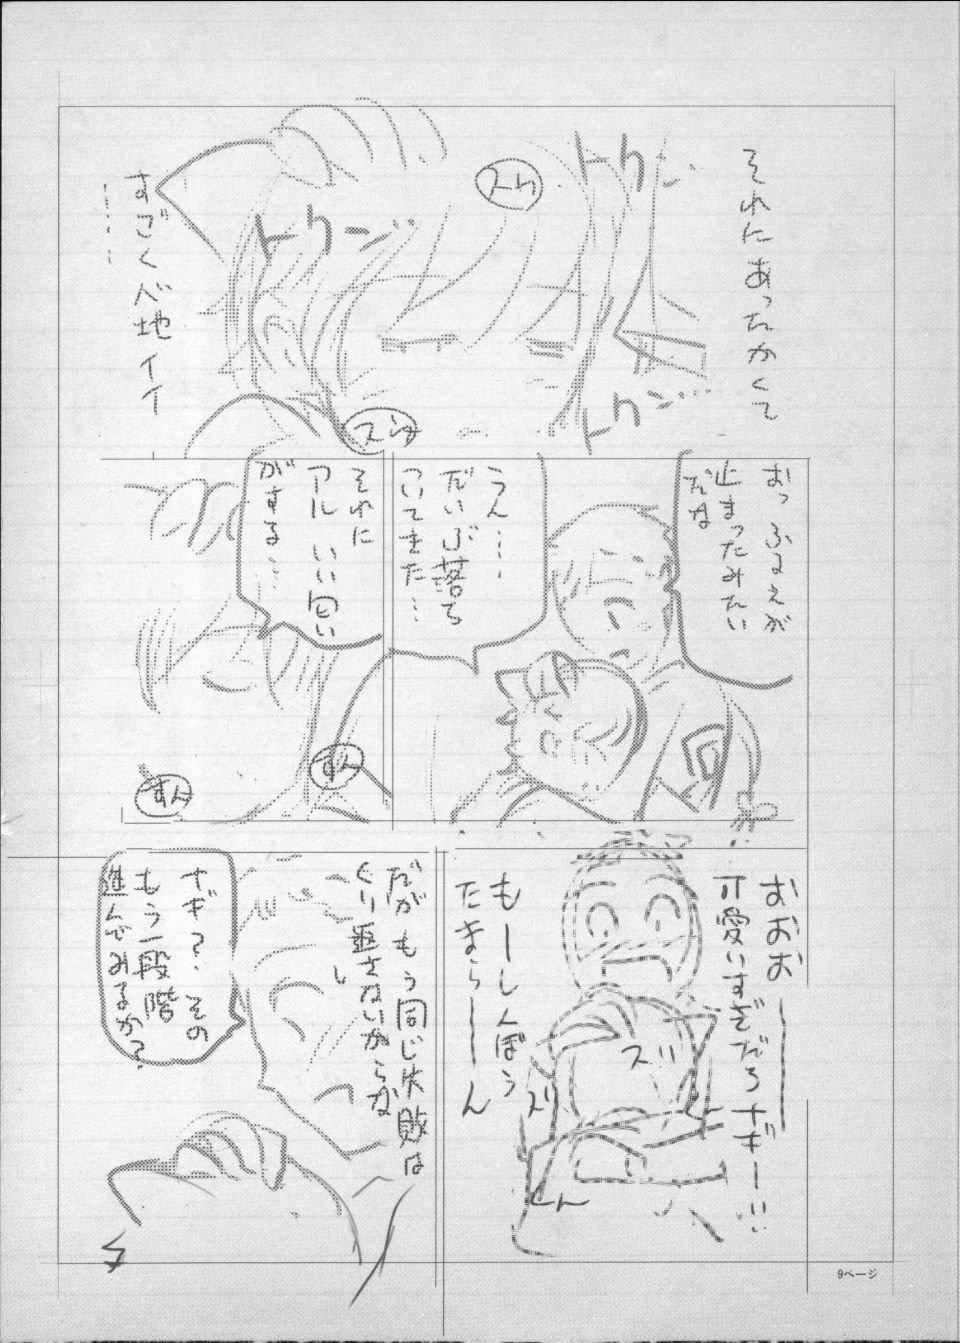 それにあったかくて
トクン…
スゥ
トクン…
トクン…
すごく心地イイ
……
スゥ
おっ ふるえが
止まったみたい
だな
うん……
だいぶ落ち
ついてきた…
それに
アル いい匂い
がする…
すん
すん
おおお
可愛いすぎだろナギー!!
もーしんぼう
たまらーん
スリ
スリ
だが もう同じ失敗は
くり返さないからな
ナギ?.その
もう一段階
進んでみるか?
9ページ